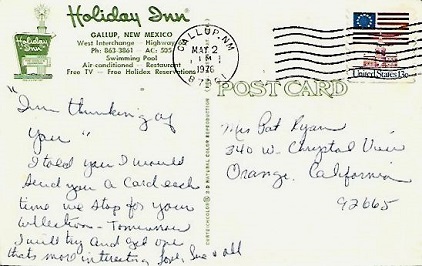 Holiday Inn
GALLUP, NEW MEXICO
West Interchange Highway
Ph: 863-3861 AC: 505
Swimming Pool
Air conditioned - Restaurant
Free TV - Free Holidex Reservations
Holiday Inn
GALLUP, NM
MAY 2
PM
1976
United States 13c
POST CARD
"I'm thinking of
you"
I told you I would
send you a card each
time we stop for your
collection - Tomorrow
I will try and get one
thats more interesting love, Sue & all
Mrs Pat Ryan
340 W. Crystal View
Orange, California
92665